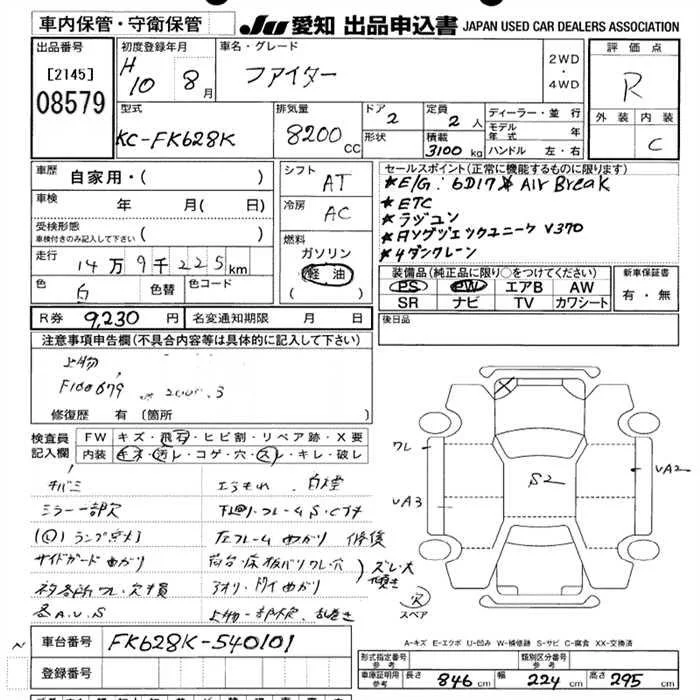 車内保管・守衛保管
JU 愛知 出品申込書 JAPAN USED CAR DEALERS ASSOCIATION
出品番号
[2145]
08579
初度登録年月
H 10 8月
車名・グレード
ファイター
2WD
・
4WD
評価点
R
外装 内装
C
型式
KC-FK628K
排気量
8200 CC
ドア 2
形状
定員 2 人
積載 3100 kg
ディーラー・並行
モデル年式 年
ハンドル 左・右
車歴 自家用・( )
車検 年 月( 日)
受検形態
車検付きのみ記入して下さい ( )
走行 14万9千225km
色 白 色替 色コード
シフト AT
冷房 AC
燃料
ガソリン
軽油
( )
セールスポイント(正常に機能するものに限ります)
★E/G:6D17 ★ Air Break
★ETC
★ラジコン
V370
★4ダンクレーン
装備品(純正品に限り○をつけてください)
PS PW エアB AW
SR ナビ TV カワシート
新車保証書
有・無
R券 9,230 円 名変通知期限 月 日
後日品
注意事項申告欄(不具合内容等は具体的に記入して下さい)
上物
F100679
修復歴 有 〔箇所 〕
検査員記入欄
FW キズ・飛石・ヒビ割・リペア跡・X要
内装 キズ・汚レ・コゲ・穴・スレ・キレ・破レ
ミラー一部欠
サイドガード曲がり
各A.U.S
下廻り・フレームS・Cプチ
左フレーム曲がり 修復
荷台・床板バリワレ・穴
アオリ・ドイ曲がり
ズレ・大
傾き
ワレ
UA3
S2
UA2
穴
スペア
A-キズ E-エクボ U-凹み W-補修跡 S-サビ C-腐食 XX-交換済
車台番号 FK628K-540101
登録番号
形式指定番号
参考
類別区分番号
参考
車庫証明用
参考
長さ 846 cm 幅 224 cm 高さ 295 cm